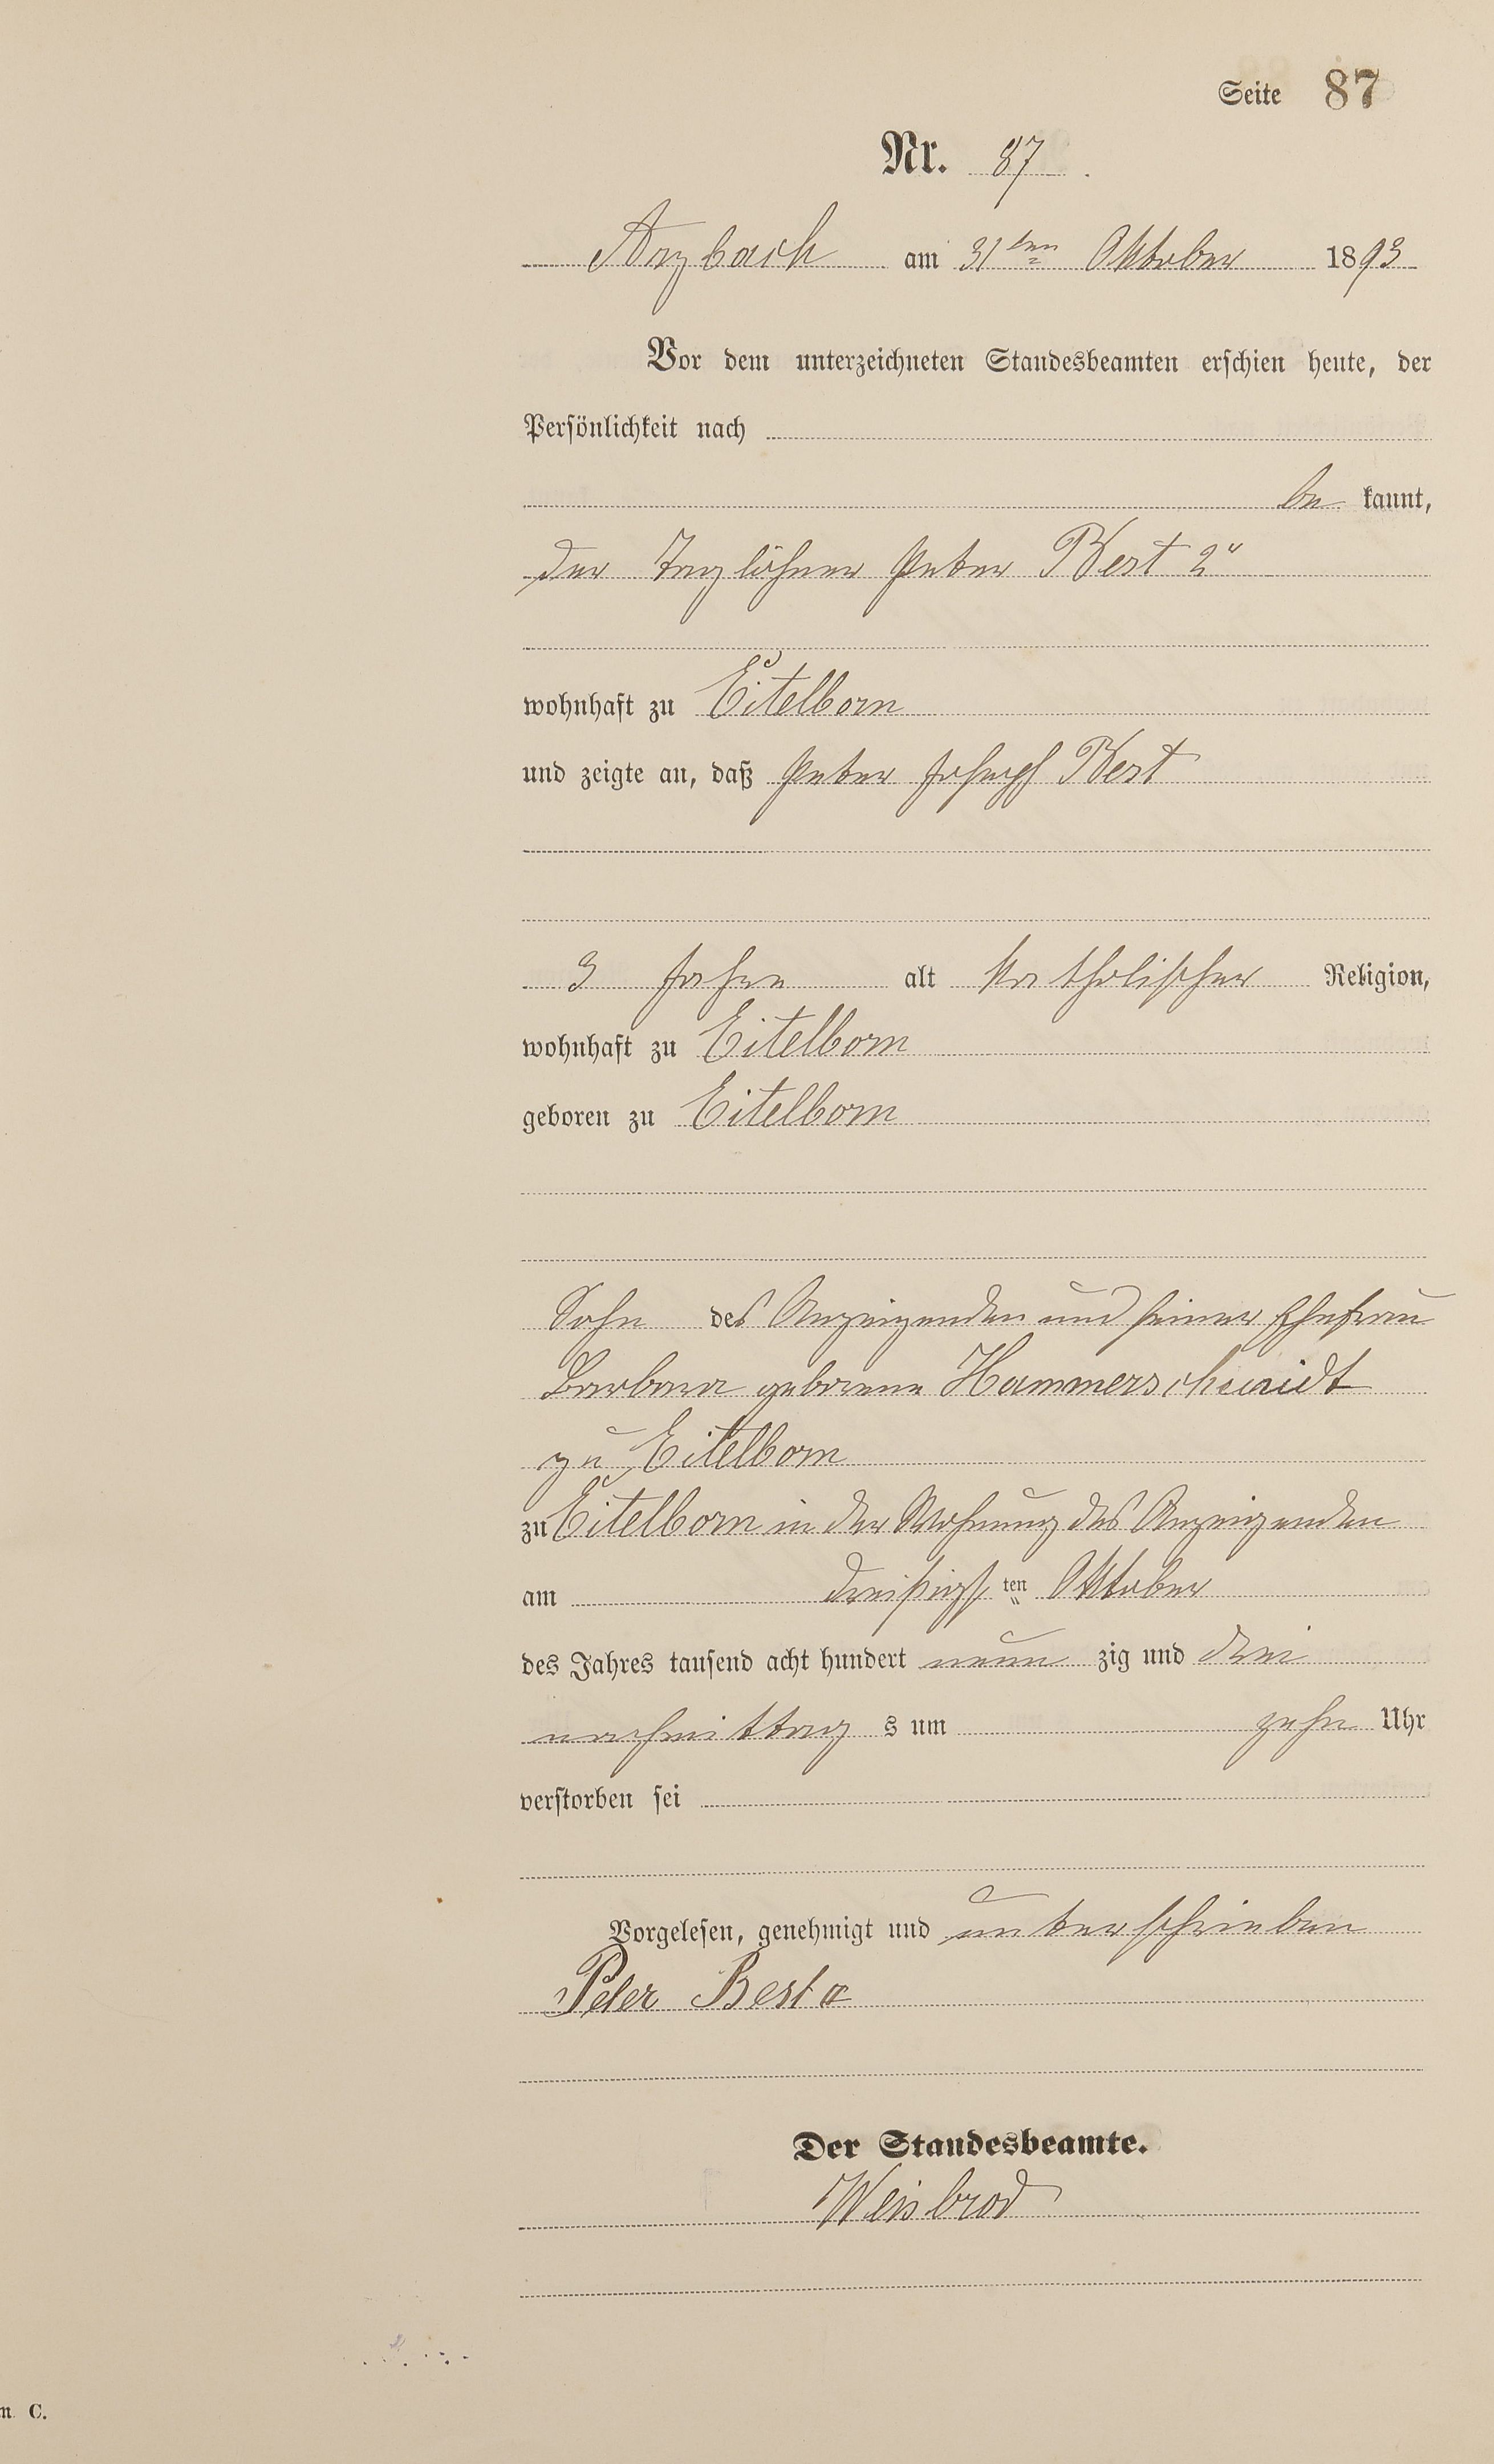 Seite 87
Nr. 87.
Arzbach am 31ten Oktober 1893
Vor dem unterzeichneten Standesbeamten erschien heute, der
Persönlichkeit nach
be kannt,
der Taglöhner Peter Best 2r
wohnhaft zu Eitelborn
und zeigte an, daß Peter Joseph Best
3 Jahre alt katholischer Religion,
wohnhaft zu Eitelborn
geboren zu Eitelborn
Sohn des Anzeigenden und seiner Ehefrau
Barbara geborene Hammerschmidt
zu Eitelborn
zu Eitelborn in der Wohnung des Anzeigenden
am dreißigsten Oktober
des Jahres tausend acht hundert neun zig und drei
nachmittag s um zehn Uhr
verstorben sei
Vorgelesen, genehmigt und unterschrieben
Peter Best
Der Standesbeamte.
Weisbrod
C.